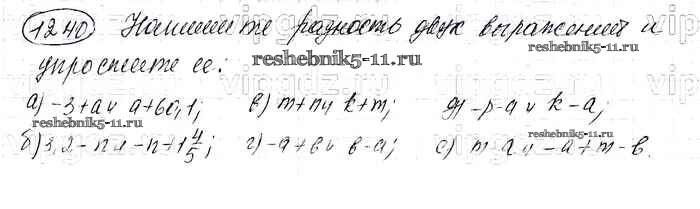 1240 Напишите разность двух выражений и
reshebnik5-11.ru
упростите ее:
а) -3+a и a+60,1; в) m+n и k+m; д) -p-a и k-a;
reshebnik5-11.ru reshebnik5-11.ru
б) 3,2-n и -n+1 4/5; г) -a+b и b-a; е) m-a и -a+m-b.